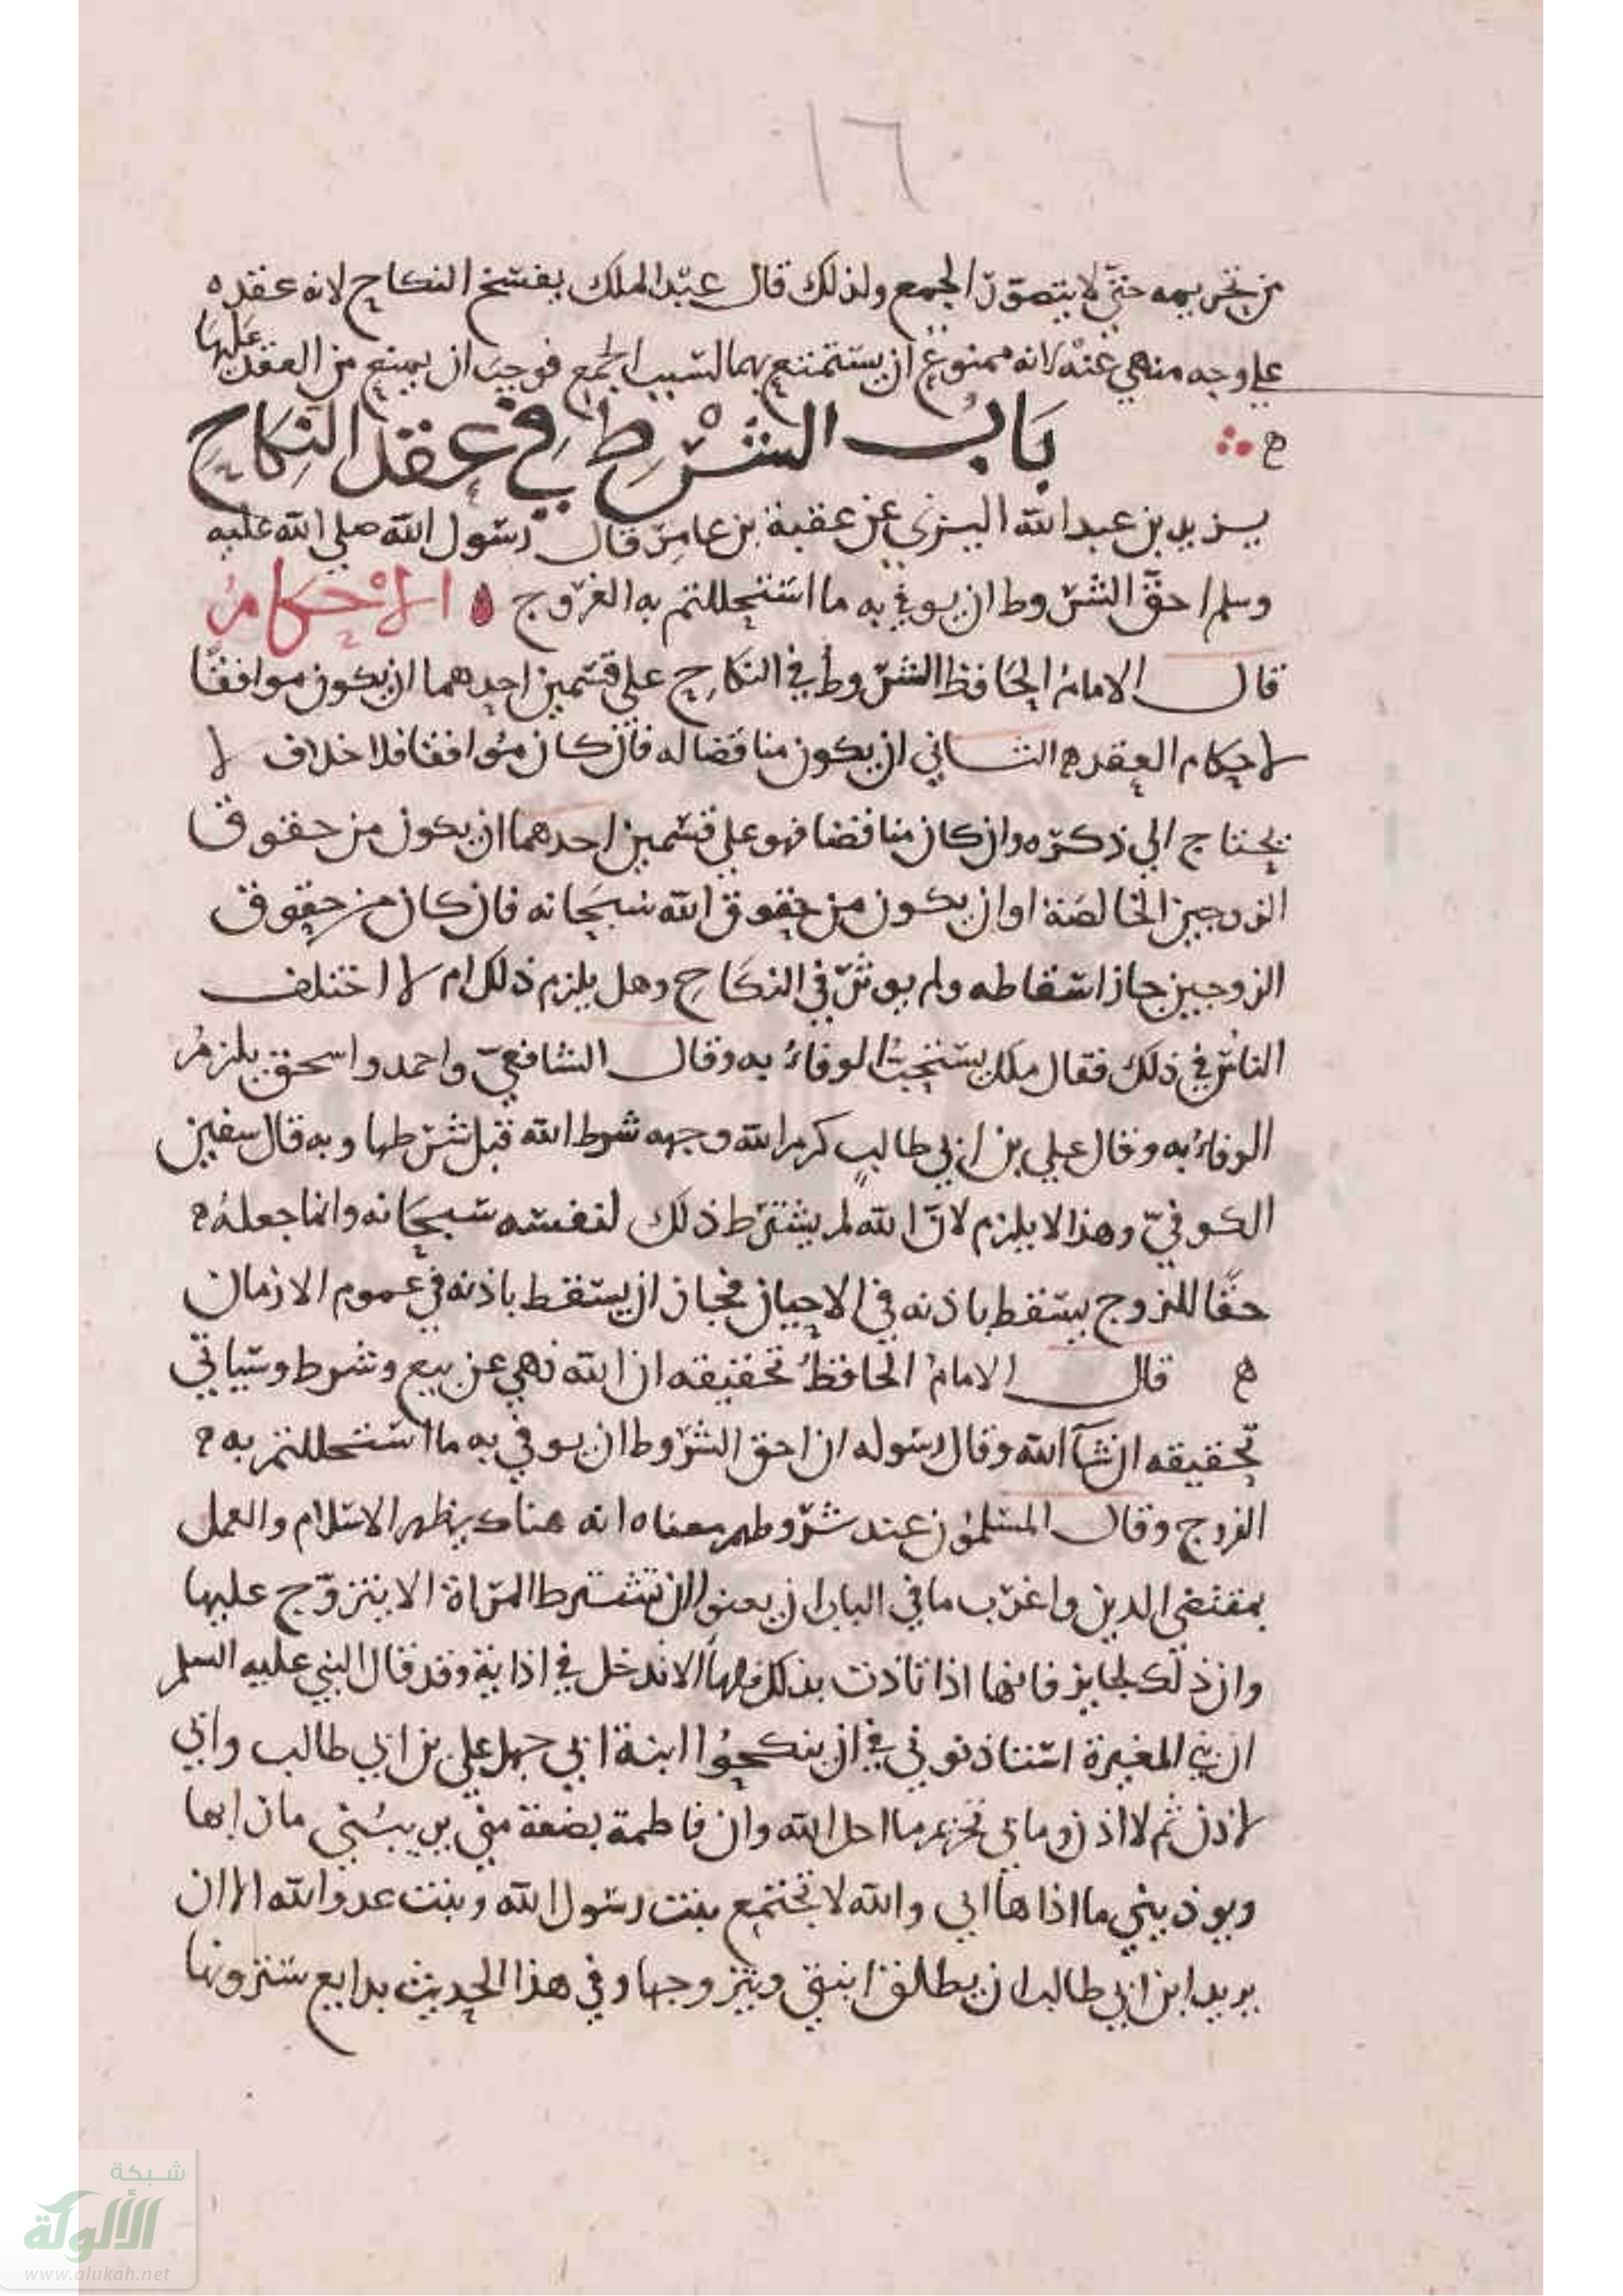 ١٦
من تحريمه حتي لا يتصوّر الجمع ولذلك قال عبد الملك يفسخ النكاح لانه عقده
علي وجه منهي عنه لانه ممنوع ان يستمتع بهما لسبب الجمع فوجب ان يمنع من العقد عليها
بَابُ الشَّرْطِ فِي عقد النِكَاحِ
يزيد بن عبد الله اليزني عن عقبة بن عامر قال رسول الله صلي الله عليه
وسلم احق الشروط ان يوفي به ما استحللتم به الفروج الاحكام
قال الامام الحافظ الشروط في النكاح علي قسمين احدهما ان يكون موافقا
لاحكام العقد الثاني ان يكون مناقضا له فان كان موافقا فلا خلاف لا
يحتاج الي ذكره وان كان مناقضا فهو علي قسمين احدهما ان يكون من حقوق
الزوجين الخالصة او ان يكون من حقوق الله سبحانه فان كان من حقوق
الزوجين جاز اسقاطه ولم يوثر في النكاح وهل يلزم ذلك ام لا اختلف
الناس في ذلك فقال ملك يستحب الوفاء به وقال الشافعي واحمد واسحق يلزم
الوفاء به وقال علي بن ابي طالب كرم الله وجهه شرط الله قبل شرطها وبه قال سفين
الكوفي وهذا لا يلزم لان الله لم يشترط ذلك لنفسه سبحانه وانما جعله
حقا للزوج يسقط باذنه في الاحيان فجاز ان يسقط باذنه في عموم الازمان
قال الامام الحافظ تحقيقه ان الله نهي عن بيع وشرط وسياتي
تحقيقه ان شآ الله وقال رسوله ان احق الشروط ان يوفي به ما استحللتم به
الفروج وقال المسلمون عند شروطهم معناه انه هناك يظهر الاسلام والعمل
بمقتضي الدين واغرب ما في الباب ان يعنوا ان تشترط المراة الا يتزوج عليها
وان ذلك لجايز فانها اذا تاذت بذلك فلها الا تدخل في اذاية وقد قال النبي عليه السلم
ان بني المغيرة استاذنوني في ان ينكحوا ابنة ابي جهل علي بن ابي طالب واني
لا اذن ثم لا اذن وما بي تحريم ما احل الله وان فاطمة بضعة مني يريبني ما رابها
ويوذيني ما اذاها اني والله لا تجتمع بنت رسول الله وبنت عدو الله الا ان
يريد ابن ابي طالب ان يطلق ابنتي ويتزوجها وفي هذا الحديث بدايع سترونها
شبكة
الألوكة
www.alukah.net